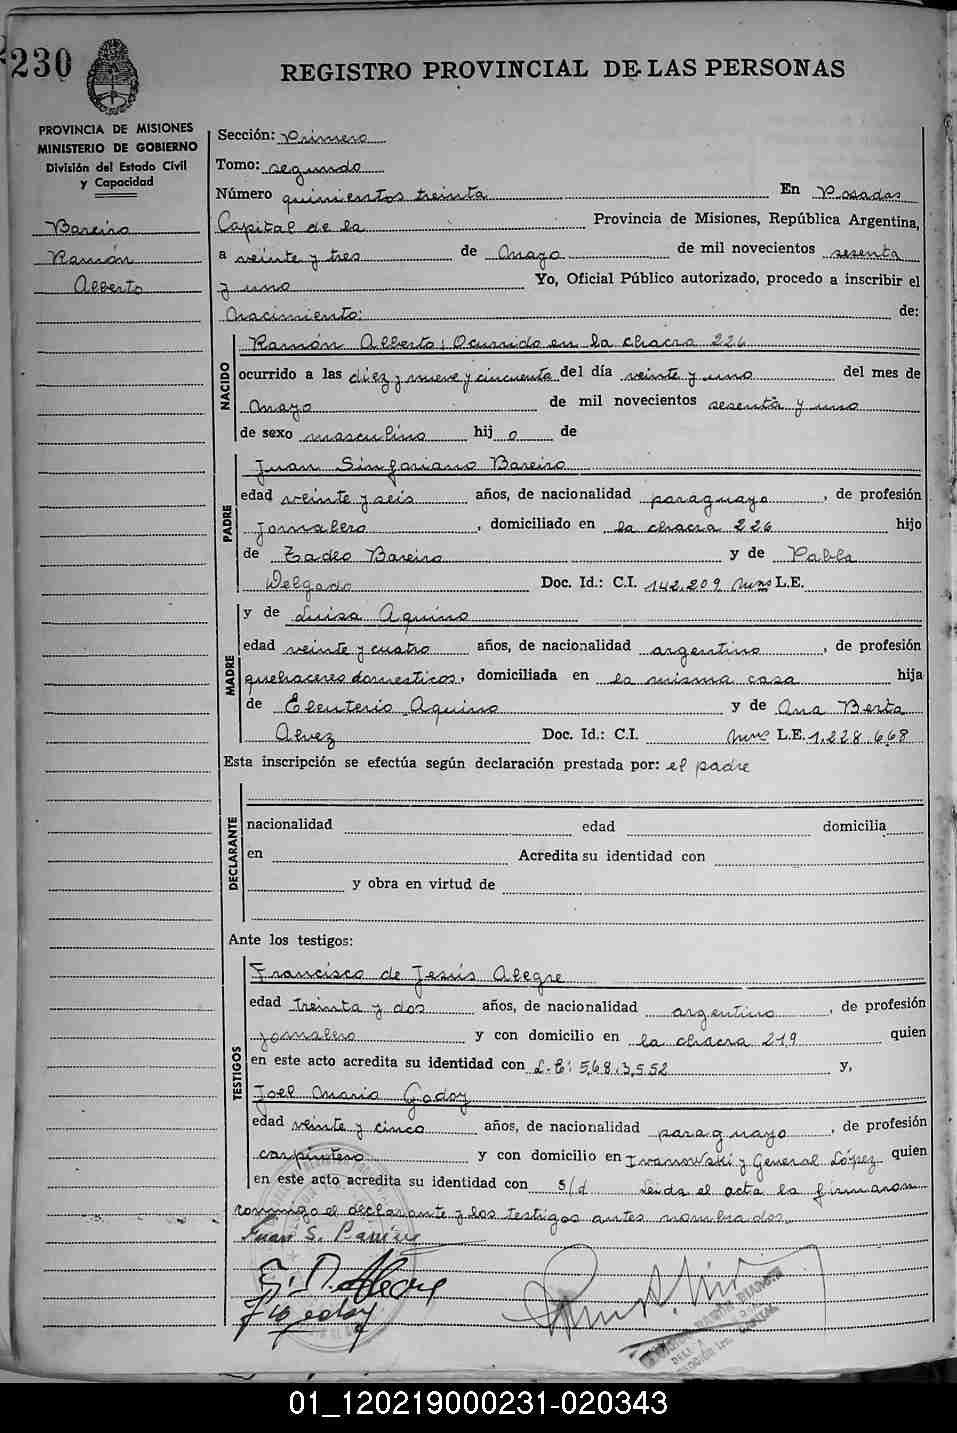 230
REGISTRO PROVINCIAL DE LAS PERSONAS
PROVINCIA DE MISIONES
MINISTERIO DE GOBIERNO
División del Estado Civil
y Capacidad
Bareiro
Ramón
Alberto
Sección: Primero
Tomo: segundo
Número quinientos treinta En Posadas
Capital de la Provincia de Misiones, República Argentina,
a veinte y tres de Mayo de mil novecientos sesenta
y uno Yo, Oficial Público autorizado, procedo a inscribir el
Nacimiento: de:
NACIDO
Ramón Alberto; Ocurrido en la chacra 226
ocurrido a las diez y nueve y cincuenta del día veinte y uno del mes de
Mayo de mil novecientos sesenta y uno
de sexo masculino hij o de
PADRE
Juan Sinforiano Bareiro
edad veinte y seis años, de nacionalidad paraguayo, de profesión
Jornalero, domiciliado en la chacra 226 hijo
de Tadeo Bareiro y de Pabla
Delgado Doc. Id.: C.I. 142.209 Mnes L.E.
MADRE
y de Luisa Aquino
edad veinte y cuatro años, de nacionalidad argentino, de profesión
quehaceres domesticos, domiciliada en la misma casa hija
de Eleuterio Aquino y de Ana Berta
Alvez Doc. Id.: C.I. Mnes L.E. 1.228.668
Esta inscripción se efectúa según declaración prestada por: el padre
DECLARANTE
nacionalidad edad domicilia
en Acredita su identidad con
y obra en virtud de
Ante los testigos:
TESTIGOS
Francisco de Jesús Alegre
edad treinta y dos años, de nacionalidad argentino, de profesión
jornalero y con domicilio en la chacra 219 quien
en este acto acredita su identidad con L.E: 5,683,552 y,
Joel Mario Godoy
edad veinte y cinco años, de nacionalidad paraguayo, de profesión
carpintero y con domicilio en Ivanowski y General López quien
en este acto acredita su identidad con s/d Leida el acta la firmaron
conmigo el declarante y los testigos antes nombrados.
Juan S. Bareiro
01_120219000231-020343